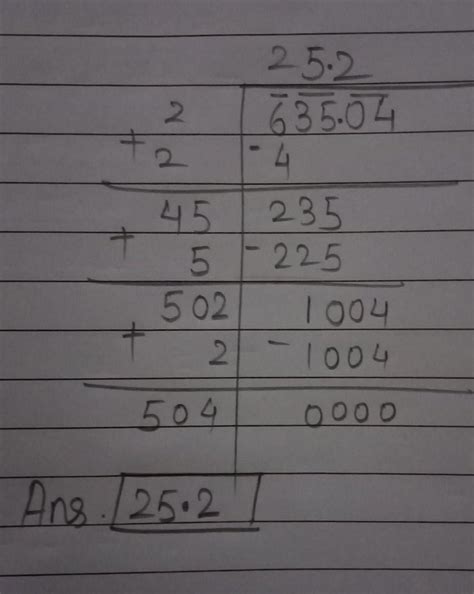 25.2
2 635.04
+ 2 - 4
45 235
+ 5 - 225
502 1004
+ 2 - 1004
504 0000
Ans. 25.2